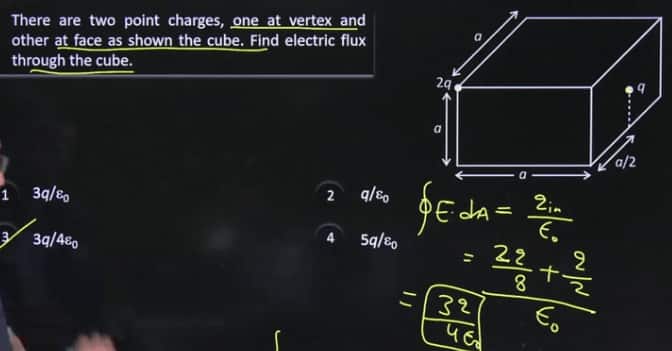 There are two point charges, one at vertex and
other at face as shown the cube. Find electric flux
through the cube.
a
2q
q
a
a/2
a
1 3q/ε₀
2 q/ε₀
3 3q/4ε₀
4 5q/ε₀
∮E·dA = q_in/ε₀
= (2q/8 + q/2)/ε₀
= 3q/4ε₀